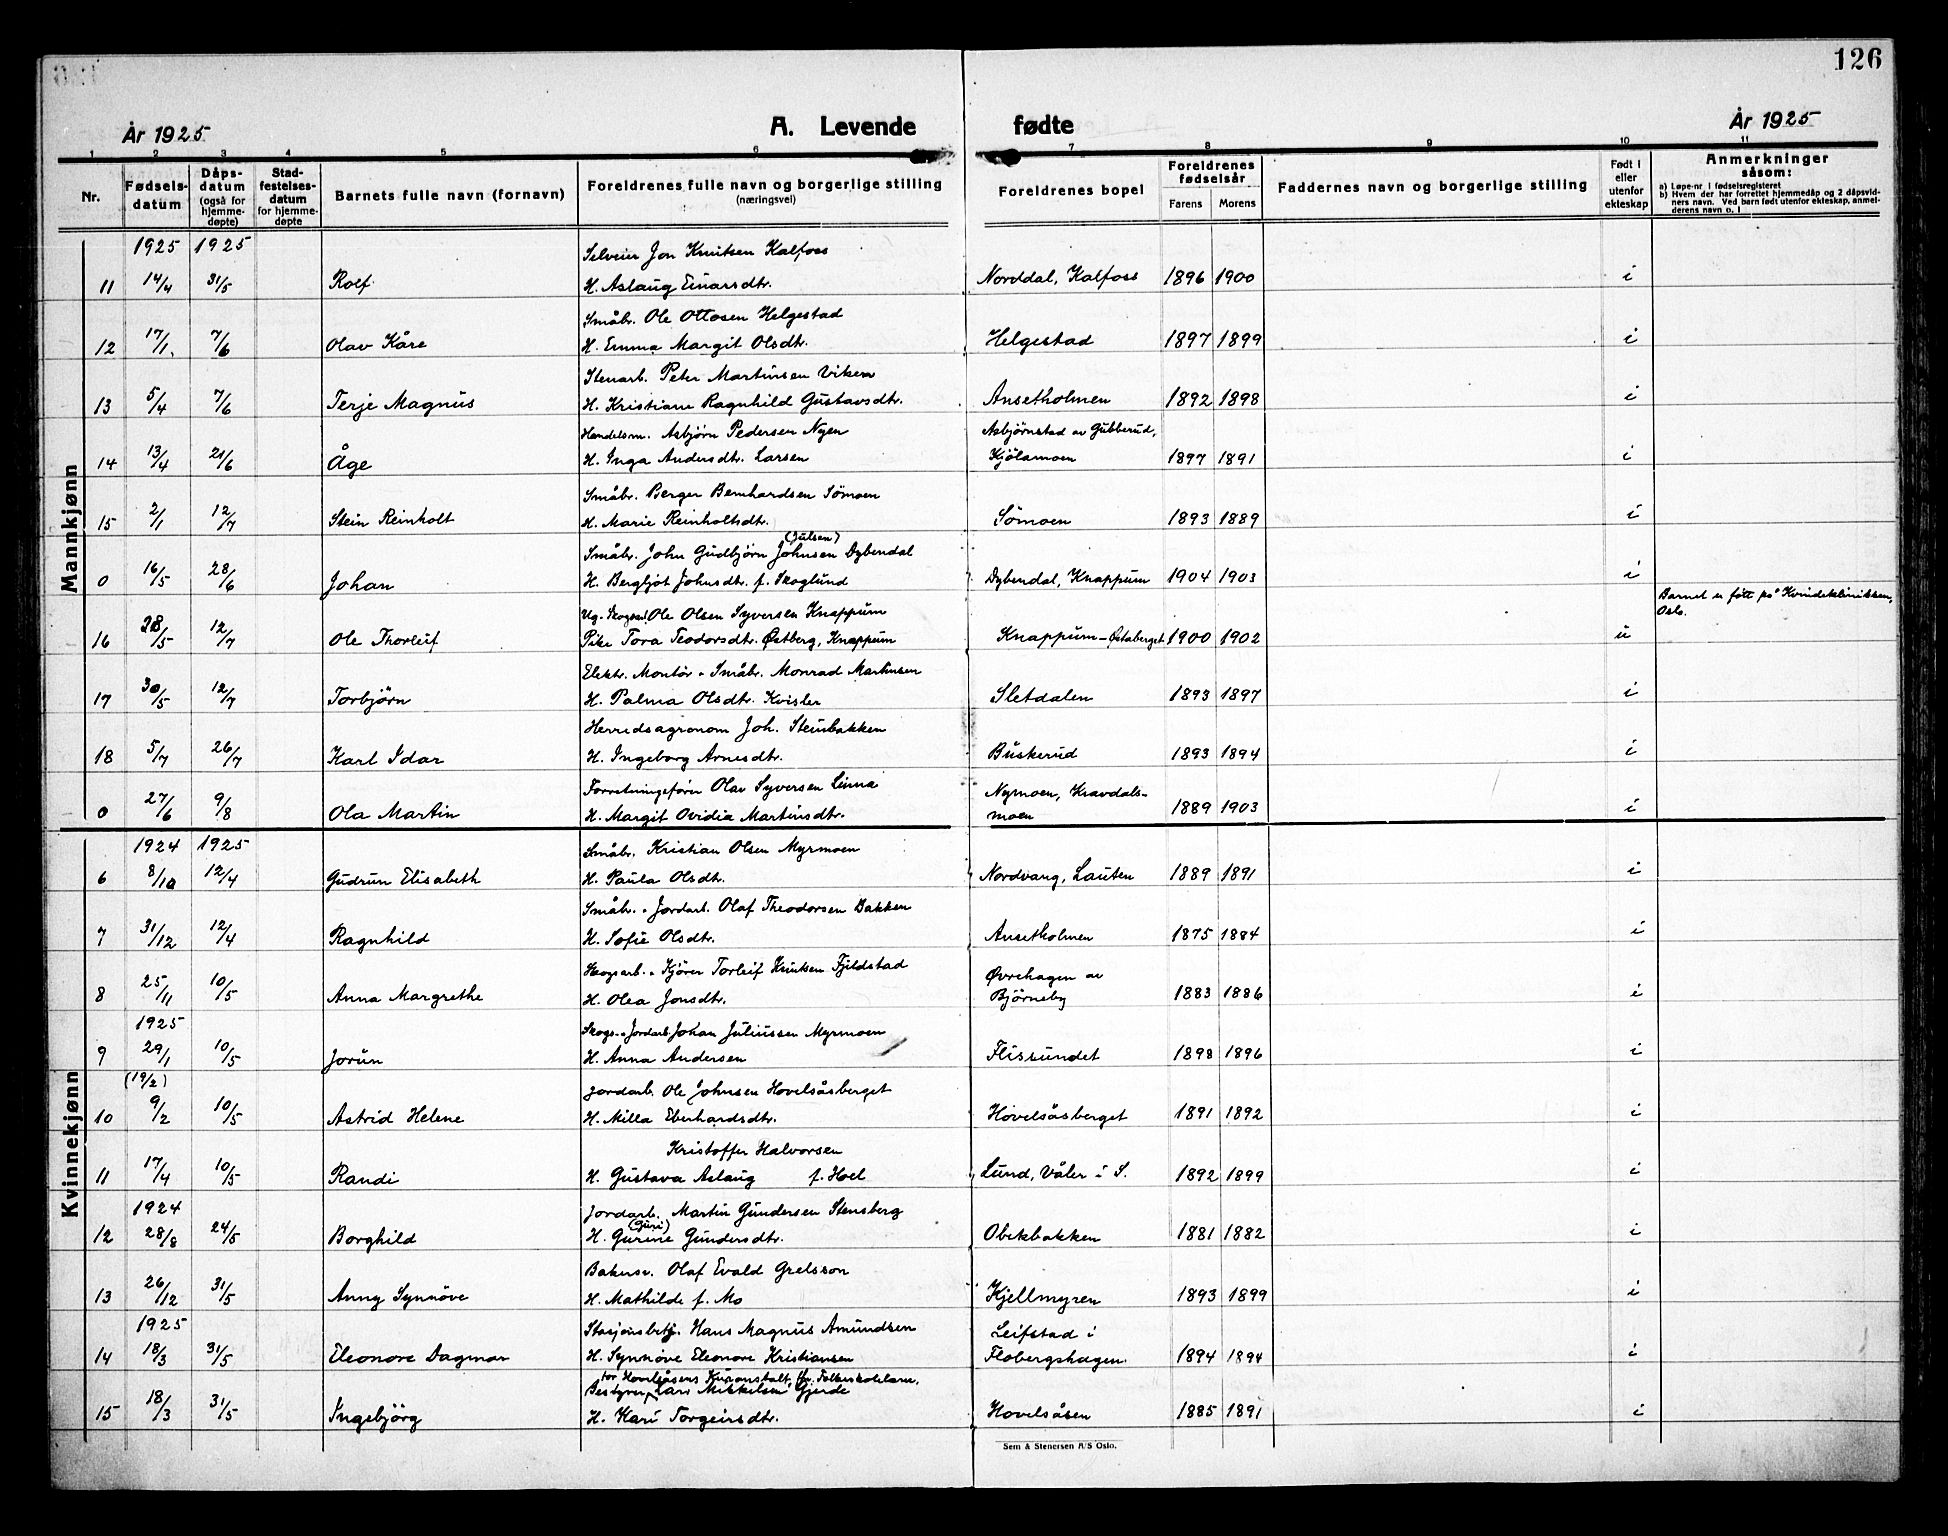 126
År 1925
A. Levende fødte
År 1925
1 2 3 4 5 6 7 8 9 10 11
Nr.
Fødsels-
datum
Dåps-
datum
(også for
hjemme-
døpte)
Stad-
festelses-
datum
for hjemme-
døpte
Barnets fulle navn (fornavn)
Foreldrenes fulle navn og borgerlige stilling
(næringsvei)
Foreldrenes bopel
Foreldrenes
fødselsår
Farens Morens
Faddernes navn og borgerlige stilling
Født i
eller
utenfor
ekteskap
Anmerkninger
såsom:
a) Løpe-nr. i fødselsregisteret
b) Hvem der har forrettet hjemmedåp og 2 dåpsvid-
ners navn. Ved barn født utenfor ekteskap, anmel-
derens navn o. l
Mannkjønn
1925 1925 Selveier Jon Knutsen Kalfoss
11 14/4 31/5 Rolf H. Aslaug Einarsdtr. Norddal, Kalfoss 1896 1900 i
Småbr. Ole Ottosen Helgestad
12 17/1. 7/6 Olav Kåre H. Emma Margit Olsdtr. Helgestad 1897 1899 i
Stenarb. Peter Martinsen Viken
13 5/4 7/6 Terje Magnus H. Kristiane Ragnhild Gustavsdtr. Ansetholmen 1892 1898 i
Handelsm. Asbjørn Pedersen Nyen Asbjørnstad av Gubberud,
14 13/4 21/6 Åge H. Inga Andersdtr. Larsen Kjølamoen 1897 1891 i
Småbr. Berger Bernhardsen Sömoen
15 2/1 12/7 Stein Reinholt H. Marie Reinholtsdtr. Sömoen 1893 1889 i
(Julsen)
Småbr. John Gudbjørn Johnsen Dybendal
0 16/5 28/6 Johan H. Bergljot Johnsdtr. f. Skoglund Dybendal, Knappum 1904 1903 i
Barnet er født på Kvindeklinikken,
Oslo.
Ug. Skogsarb. Ole Olsen Syversen Knappum
16 28/5 12/7 Ole Thorleif Pike Tora Teodorsdtr. Østberg, Knappum Knappum - Østaberget 1900 1902 u
Elektr. Montør - Småbr. Monrad Martinsen
17 30/5 12/7 Torbjörn H. Palma Olsdtr. Kvisler Sletdalen 1893 1897 i
Herredsagronom Joh. Steinbakken
18 5/7 26/7 Karl Idar H. Ingeborg Arnesdtr. Buskerud 1893 1894 i
Forretningsfører Olav Syversen Linna Nymoen, Kravdals-
0 27/6 9/8 Ola Martin H. Margit Ovidia Martinsdtr. moen 1889 1903 i
Kvinnekjønn
1924 1925 Småbr. Kristian Olsen Myrmoen
6 8/10 12/4 Gudrun Elisabeth H. Paula Olsdtr. Nordvang, Lauten 1889 1891 i
Småbr. - Jordarb. Olaf Theodorsen Bakken
7 31/12 12/4 Ragnhild H. Sofie Olsdtr. Ansetholmen 1875 1884 i
Skogsarb. - Kjörer Torleif Knutsen Fjeldstad Øvrehagen av
8 25/11 10/5 Anna Margrethe H. Olea Jonsdtr. Björneby 1883 1886 i
1925 Skogs.- Jordarb. Johan Juliussen Myrmoen
9 29/1 10/5 Jorun H. Anna Andersen Flissundet 1898 1896 i
(19/2) Jordarb. Ole Johnsen Hovelsåsberget
10 9/2 10/5 Astrid Helene H. Milla Eberhardsdtr. Hovelsåsberget 1891 1892 i
Kristoffer Halvorsen
11 17/4 10/5 Randi H. Gustava Aslaug f. Hoel Lund, Våler i S. 1892 1899 i
1924 Jordarb. Martin Gundersen Stensberg
(Guri)
12 28/8 24/5 Borghild H. Gurine Gundersdtr. Obekbakken 1881 1882 i
Bakersv. Olaf Evald Grelsson
13 26/12 31/5 Anny Synnöve H. Mathilde f. Mo Kjellmyren 1893 1899 i
1925 Stasjonsbetj. Hans Magnus Amundsen Leifstad i
14 18/3 31/5 Eleonore Dagmar H. Synnöve Eleonore Kristiansen Flobergshagen. 1894 1894 i
for Hovelsåsens Kuranstalt, fhv. Folkeskolelærer,
Bestyrer Lars Mikkelsen Gjerde
15 18/3 31/5 Ingebjörg H. Kari Torgeirsdtr. Hovelsåsen 1885 1891 i
Sem & Stenersen A/S Oslo.